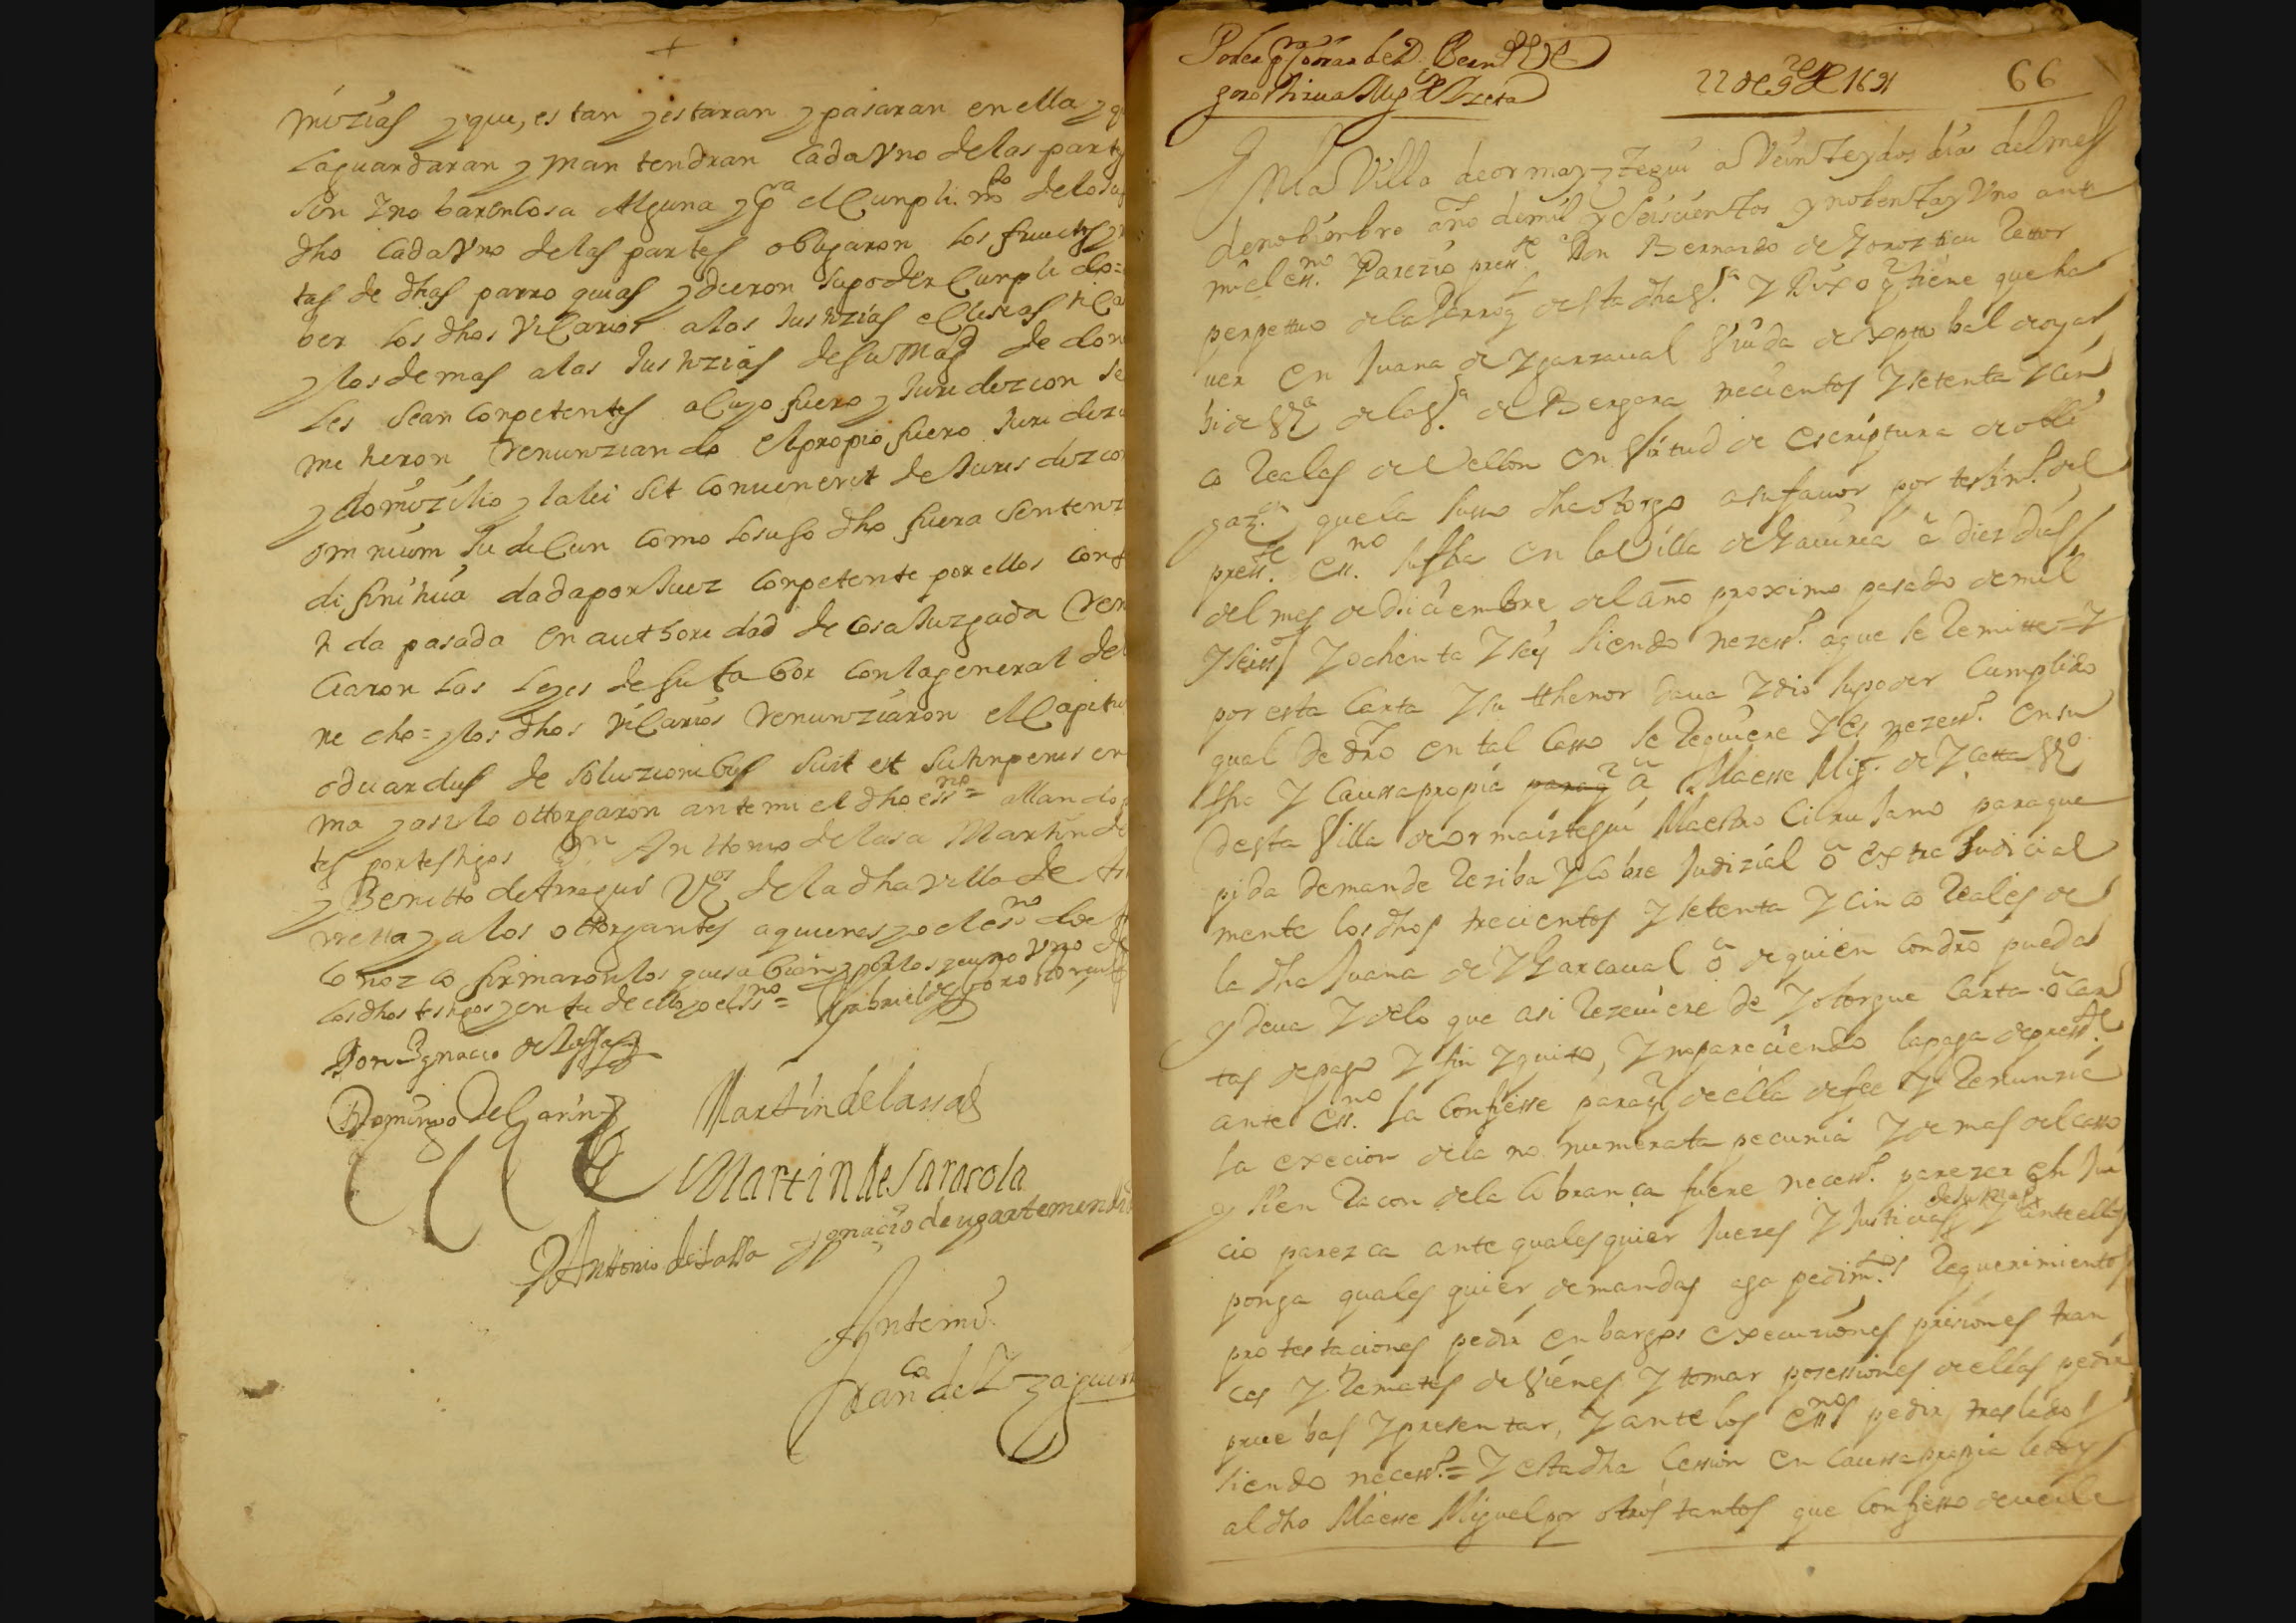 muzias y que, estan y estaran y pasaran en ella y q
laguardaran y man tendran Cada Vno delas party
sin Yno bar en Cosa Alguna y pa el Cunpli. mto delosu
dho Cada Vno delas partes obligaron los fructos y
tas de dhas parro quias y dieron supoder Cunpli do=
ber los dhos ViCarios alas Justizias eClesias tiCa
y los demas alas Justizias desu Magd de don
les sean Conpetentes aCuyo fuero y Juridizion se
me tieron Renunziando el propio fuero Juri dizi
y domizilio y la lei sit Conuenerit de Juris dizio
omnium JudiCun Como losuso dho fuera sentenz
difinitiua dada por Juez Conpetente por ellos Cons
ti da pasada en authori dad de Cosa Juzgada Ren
Ciaron las leyes desu fabor Con la general del
re cho= y los dhos ViCarios Renunziaron el Capitu
oduardus de soluzionibus
ma y asi lo ottorgaron ante mi el dho essno=
tes por testigos Dn Anttonio de lasa Martin de
y Benitto de Arregui Vzos dela dha villa de
y alos ottorgantes a quienes yo el esno doe
Conozco firmaron los que sabian y por los que no Vno de
los dhos testigos y en fe de ello yo el ssno= Gabriel de
Don Ygnacio de Lassa
Domingo De Garin
Martin de lassa
Martin de Sarasola
Anttonio de Lassa
ygnacio de ugartemendia
Ante mi
Franco de Yzaguirr
Poder Para cobrar de D. Bernd de
gorostizu a Migl de Yzeta
22 de 9re de 1691
66
En la Villa de ormayztegui a Veinte y dos dias del mes
de nobienbre año de mil y Seiscientos y nobenta y Vno ante
mi el essno. Parezio presste Don Bernardo de Gorozticu Rettor
perpettuo de la Parroq de esta dha Va. Y Dixo q tiene que ha
uer en Juana de Ygarzaual Viuda de Xpttobal de oyar
bide Vza de la Va. de Bergara trecientos Y setenta Y Cin
co Reales de Vellon en Virtud de escriptura de obli
gazon que la susso dha otorgo a su fauor por testimo. del
presste essno su fha en la Villa de Gauiria a diez dias
del mes de diciembre del año proximo pasado de mil
Y seisso Y ochenta Y seis siendo nezesso. a que se Remitte= Y
por esta Carta Y su tthenor daua Y dio su poder Cumplido
qual de dro en tal Casso se Requiere Y es nezesso. en su
fho Y Caussa propia paraq a Maesse Migl. de Yzetta Vzo.
desta Villa de ormaiztegui Maestro Cirujano para que
pida demande Reziba Y Cobre Judizial o extra Judicial
mente los dhos trecientos Y setenta Y cinco Reales de
la dha Juana de YGarcaual o de quien Con dro pueda
y deua Y de lo que asi Rezeuiere de Y otorgue Carta o Car
tas de pago Y fin Y quito, Y no pareciendo la paga de presste
ante essno. la Confiesse para q de ella de fee Y Renunzie
la execion de la no numerata pecunia Y de mas del casso
y si en Racon de la Cobranca fuere necesso. parezer en Jui
cio parezca ante quales quier Juezes Y Justicias de su Magd Y ante ellos
ponga quales quier demandas aga pedimtos Requerimientos
protestaciones pedir enbargos execuziones prisiones tran
ces Y Remates de Vienes Y tomar posessiones de ellas pedir
prue bas Y presentar, Y ante los essnos pedir traslados
siendo necesso.= Y esta dha Cession en Caussa propia le doy
al dho Maesse Miguel por otros tantos que Confiesso deuerle